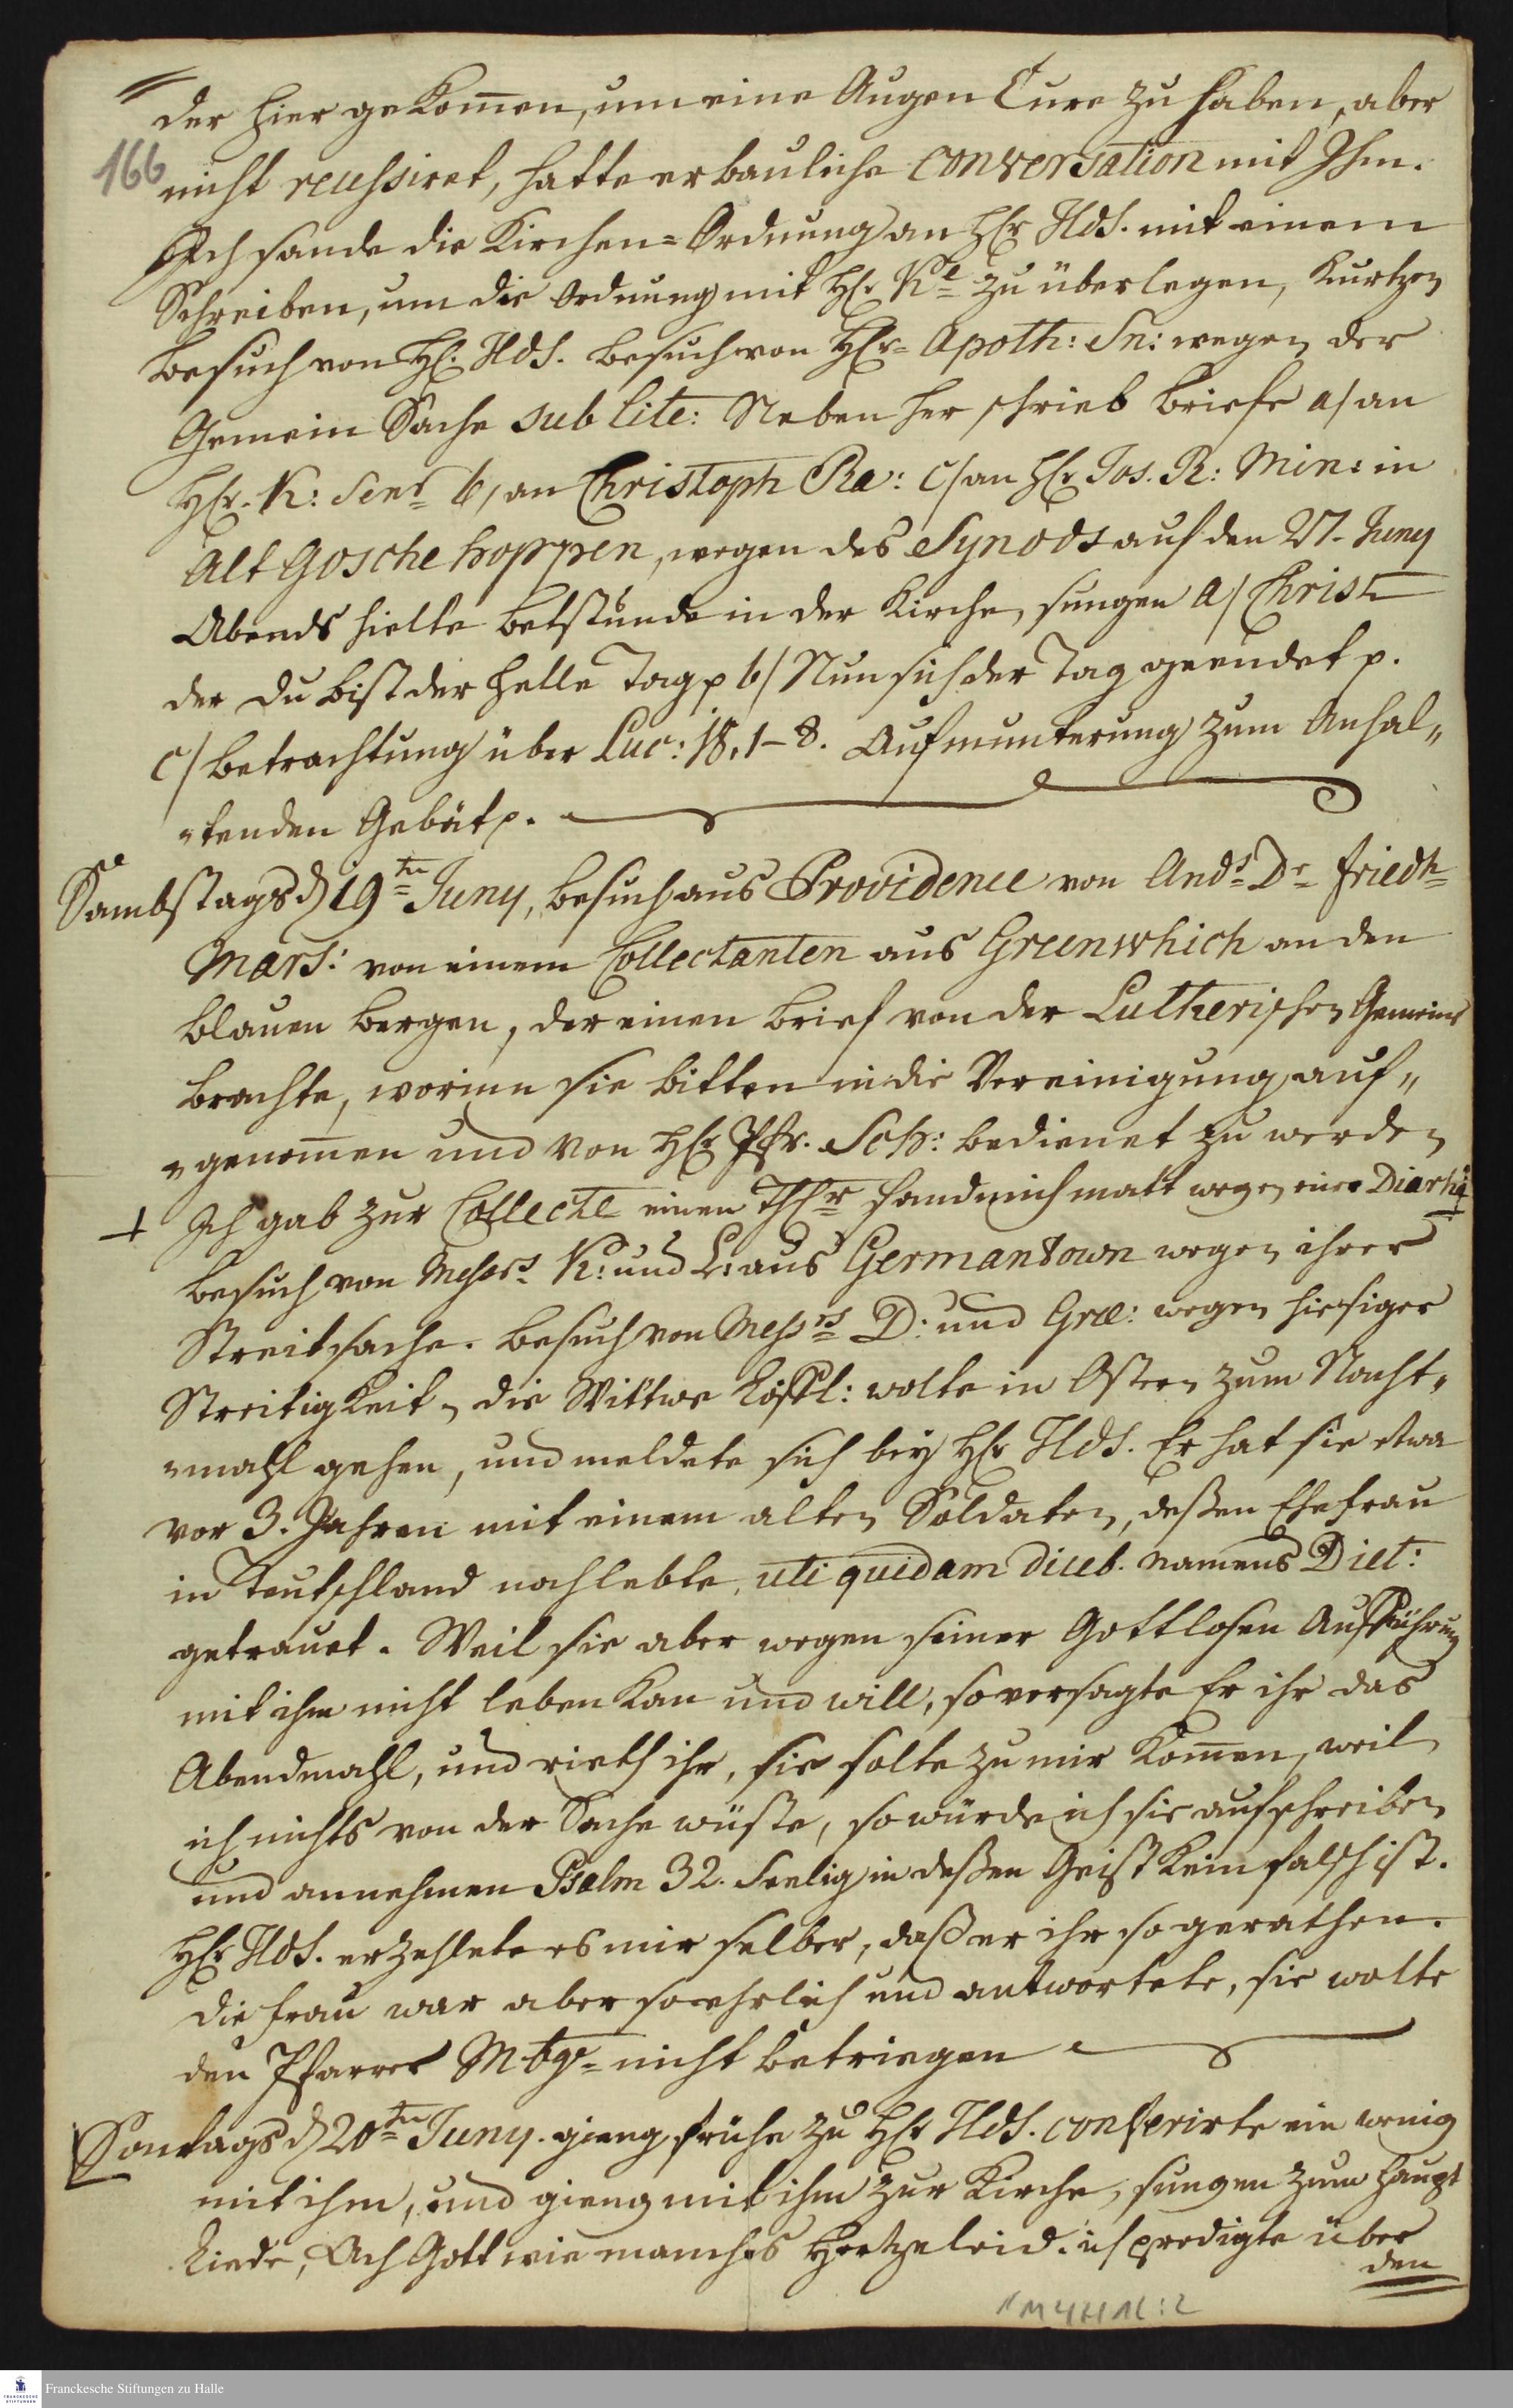 der hier gekom̄en, um eine Augen Cure zu haben, aber
166
nicht reussiret, hatte erbauliche conversation mit Ihm.
Ich sande die Kirchen=Ordnung an Hr Hds. mit einem
Schreiben, um die Ordnung mit Hr. Kl zu überlegen, kurtzen
besuch von Hr. Hds. besuch von Hr= Apoth: Sn: wegen der
Gemein Sache sub lite: Neben her schrieb briefe a/ an
Hr. K: Senr b/ an Christoph Ra: c/ an Hr Jos. R: Min: in
Alt Goschehoppen, wegen des Synods auf den 27. Juny
Abends hielte betstunde in der Kirche, sungen a/ Christ
der du bist der helle Tag p b/ Nun sich der Tag geendet p.
c/ betrachtung über Luc: 18, 1-8. Aufmunterung zum Anhal„
„tenden Gebät p.
Sambstags d 19ten Juny, besuch aus Providence von Ands Dr friedh
Mars: von einem Collectanten aus Greenwhich an den
blauen bergen, der einen brief von der Lutherischen Gemeine
brachte, worinn sie bitten in die Vereinigung auf„
„genom̄en und von Hr Pfr. Sch: bedienet zu werden
+ Ich gab zur Collecte einen Thlr fand mich matt wegen einer
besuch von Messrs K: und L: aus Germantown wegen ihrer
Streitsache. besuch von Messrs D: und Græ: wegen hiesiger
Streitigkeit, die Wittwe Löffl: wolte in Ostern zum Nacht„
„mahl gehen, und meldete sich bey Hr Hds. Er hat sie etwa
vor 3. Jahren mit einem alten Soldaten, deßen Ehefrau
in Teutschland noch lebte, uti quidam diceb. namens Diet:
getrauet. Weil sie aber wegen seiner Gottlosen Aufführung
mit ihm nicht leben kan und will, so versagte Er ihr das
Abendmahl, und rieth ihr, sie solte zu mir kom̄en, weil
ich nichts von der Sache wüste, so würde ich sie aufschreiben
und annehmen Psalm 32. Seelig in deßen Geist kein falsch ist.
Hr Hds. erzehlete es mir selber, daß er ihr so gerathen.
die frau war aber so ehrlich und antwortete, sie wolte
den Pfarrer Mbg= nicht betriegen
Sontags d 20ten Juny. gieng frühe zu Hr Hds. conferirte ein wenig
mit ihm, und gieng mit ihm zur Kirche, sungen zum Haupt
Liede, Ach Gott wie manches Hertzeleid. ich predigte über
den
Franckesche Stiftungen zu Halle